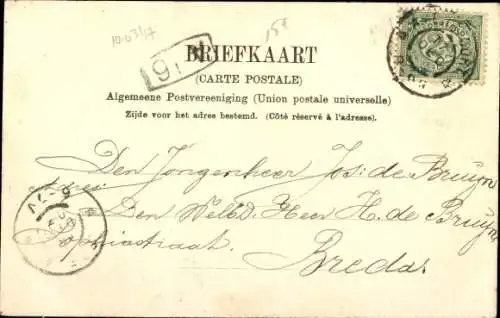 BRIEFKAART
(CARTE POSTALE)
Algemeene Postvereeniging (Union postale universelle)
Zijde voor het adres bestemd. (Côté réservé à l'adresse).
Den Jongenheer Jos: de Bruyn
Adres:
Den WelEd. Heer H. de Bruyn
Breda